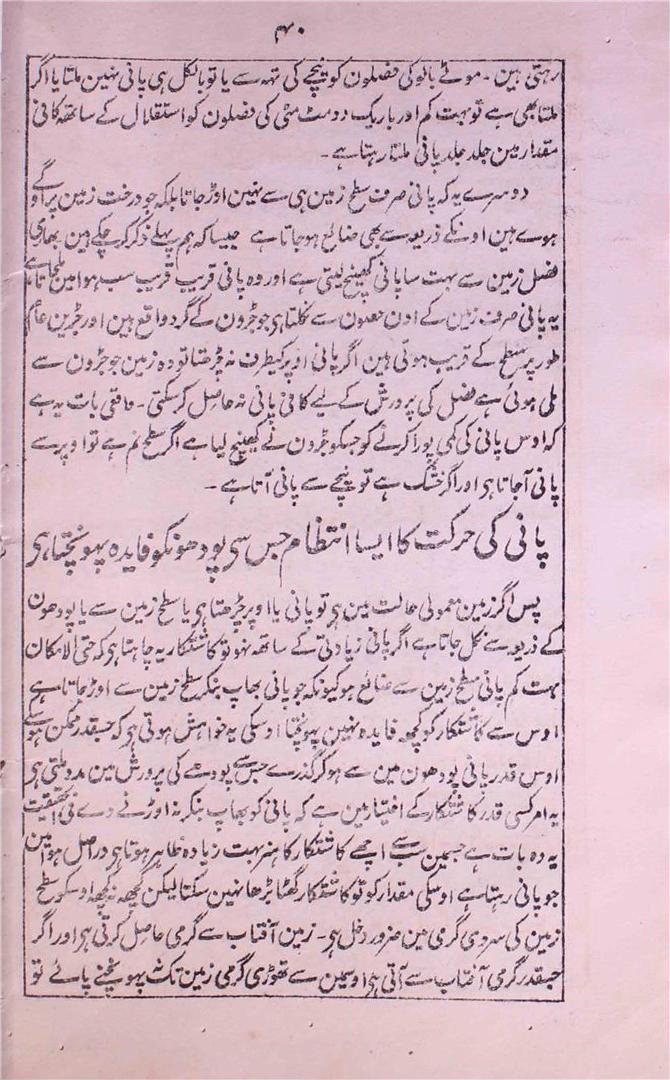 ۴۰
رہتی ہین ۔ موٹے بالو کی فصلون کو نیچے کی تہہ سے یا تو بالکل ہی پانی نہین ملتا یا اگر
ملتا بھی ہے تو بہت کم اور باریک دومٹ مٹی کی فصلون کو استقلال کے ساتھ کافی
مقدار مین جلد جلد پانی ملتا رہتا ہے ۔
دوسرے یہ کہ پانی صرف سطح زمین ہی سے نہین اوڑ جاتا بلکہ جو درخت زمین پر اوگے
ہوے ہین اونکے ذریعہ سے بھی ضائع ہو جاتا ہے جیسا کہ ہم پہلے ذکر کر چکے ہین ۔ بھاری
فصل زمین سے بہت سا پانی کھینچ لیتی ہے اور وہ پانی قریب قریب سب ہوا مین ملجاتا ہے
یہ پانی صرف زمین کے اون حصون سے نکلتا ہی جو جڑون کے گرد واقع ہین اور جڑین عام
طور پر سطح کے قریب ہوتی ہین اگر پانی اوپر کیطرف نہ چڑھتا تو وہ زمین جو جڑون سے
ملی ہوئی ہے فصل کی پرورش کے لیے کافی پانی نہ حاصل کر سکتی ۔ واقعی بات یہ ہے
کہ اوس پانی کی کمی پورا کرنے کو جسکو جڑون نے کھینچ لیا ہے اگر سطح نم ہے تو اوپر سے
پانی آ جاتا ہی اور اگر خشک ہے تو نیچے سے پانی آتا ہے ۔
پانی کی حرکت کا ایسا انتظام جس سی پودھونکو فایدہ پہونچتا ہی
پس اگر زمین معمولی حالت مین ہی تو پانی یا اوپر چڑھتا ہی یا سطح زمین سے یا پودھون
کے ذریعہ سے نکل جاتا ہے اگر پانی زیادتی کے ساتھ نہو تو کاشتکار یہ چاہتا ہی کہ حتی الامکان
بہت کم پانی سطح زمین سے ضائع ہو کیونکہ جو پانی بھاپ بنکر سطح زمین سے اوڑ جاتا ہے
اوس سے کاشتکار کو کچھ فایدہ نہین پہونچتا اوسکی یہ خواہش ہوتی ہی کہ جسقدر ممکن ہو سکے
اوس قدر پانی پودھون مین سے ہو کر گذرے جس سے پودھے کی پرورش مین مدد ملتی ہی
یہ امر کسی قدر کاشتکار کے اختیار مین ہے کہ پانی کو بھاپ بنکر نہ اوڑنے دے فی الحقیقت
یہ وہ بات ہے جسمین سب سے اچھے کاشتکار کا ہنر بہت زیادہ ظاہر ہوتا ہی دراصل ہوا مین
جو پانی رہتا ہے اوسکی مقدار کو تو کاشتکار گھٹا بڑھا نہین سکتا لیکن کچھ نہ کچھ اوسکو سطح
زمین کی سردی گرمی مین ضرور دخل ہی ۔ زمین آفتاب سے گرمی حاصل کرتی ہی اور اگر
جسقدر گرمی آفتاب سے آتی ہی اوسمین سے تھوڑی گرمی زمین تک پہونچنے پائے تو